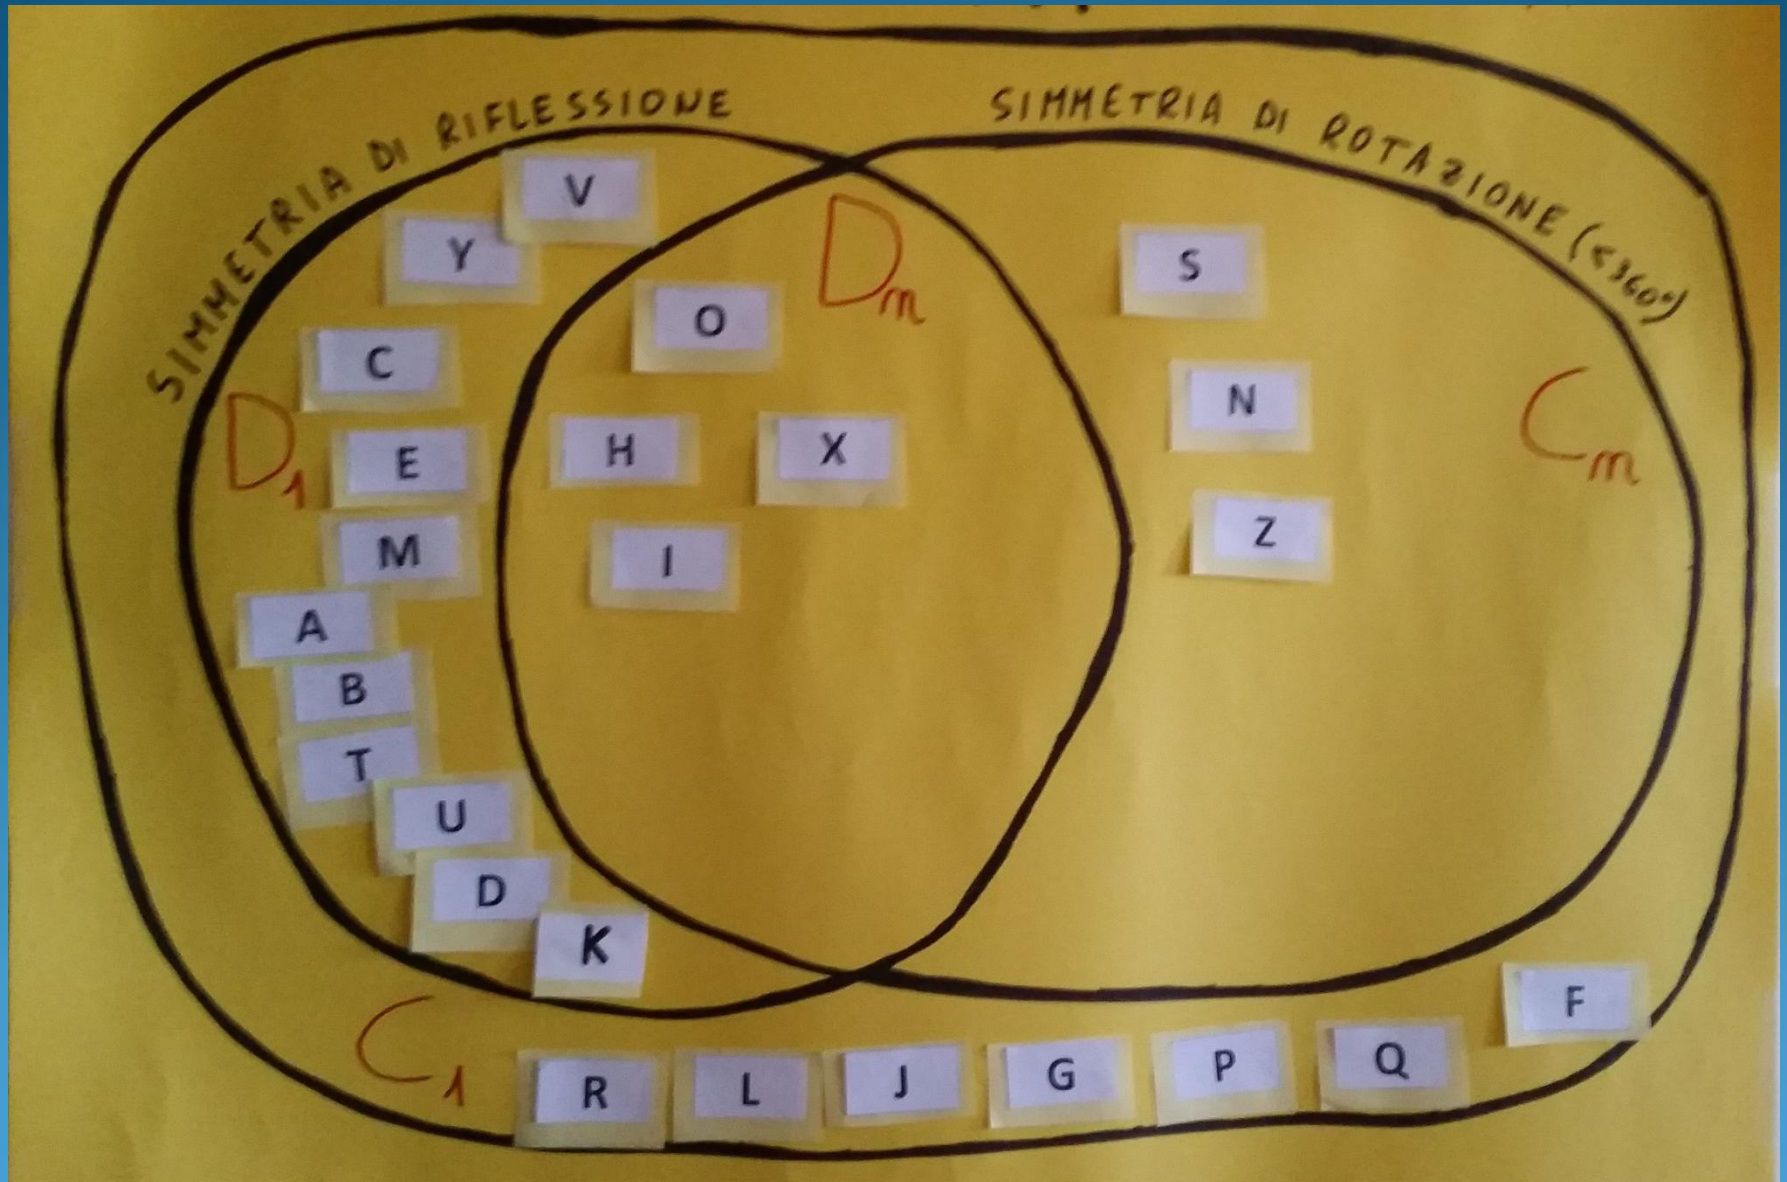 SIMMETRIA DI RIFLESSIONE
SIMMETRIA DI ROTAZIONE (<360°)
V
Y
C
D1
E
M
A
B
T
U
D
K
Dm
O
H
X
I
S
N
Z
Cm
C1
R
L
J
G
P
Q
F